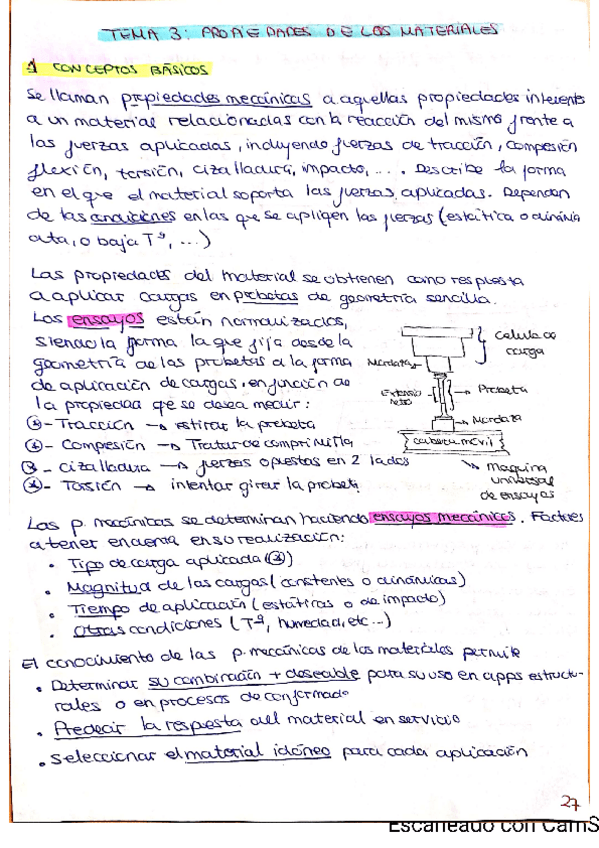 TEMA 3: PROPIEDADES DE LOS MATERIALES
1 CONCEPTOS BÁSICOS
Se llaman propiedades mecánicas a aquellas propiedades inherentes
a un material relacionadas con la reacción del mismo frente a
las fuerzas aplicadas, incluyendo fuerzas de tracción, compresión
flexión, torsión, cizalladura, impacto, ... . Describe la forma
en el que el material soporta las fuerzas aplicadas. Dependen
de las condiciones en las que se apliquen las fuerzas (estática o dinámica
alta, o baja Tª, ...)
Las propiedades del material se obtienen como respuesta
a aplicar cargas en probetas de geometría sencilla.
Los ensayos están normalizados,
siendo la forma la que fija desde la
geometría de las probetas a la forma
de aplicación de cargas, en función de
la propiedad que se desea medir:
- Tracción → estirar la probeta
- Compresión → Tratar de comprimirla
- Cizalladura → fuerzas opuestas en 2 lados
- Torsión → intentar girar la probeta
Célula de
carga
Mordaza
Extensó
metro
Probeta
Mordaza
cabeza móvil
Maquina
universal
de ensayos
Las p. mecánicas se determinan haciendo ensayos mecánicos. Factores
a tener en cuenta en su realización:
• Tipo de carga aplicada
• Magnitud de las cargas (constantes o dinámicas)
• Tiempo de aplicación (estáticas o de impacto)
• Otras condiciones (Tª, humedad, etc...)
El conocimiento de las p. mecánicas de los materiales permite
• Determinar su combinación + deseable para su uso en apps estructu-
rales o en procesos de conformado
• Predecir la respuesta del material en servicio
• Seleccionar el material idóneo para cada aplicación
27
Escaneado con CamS